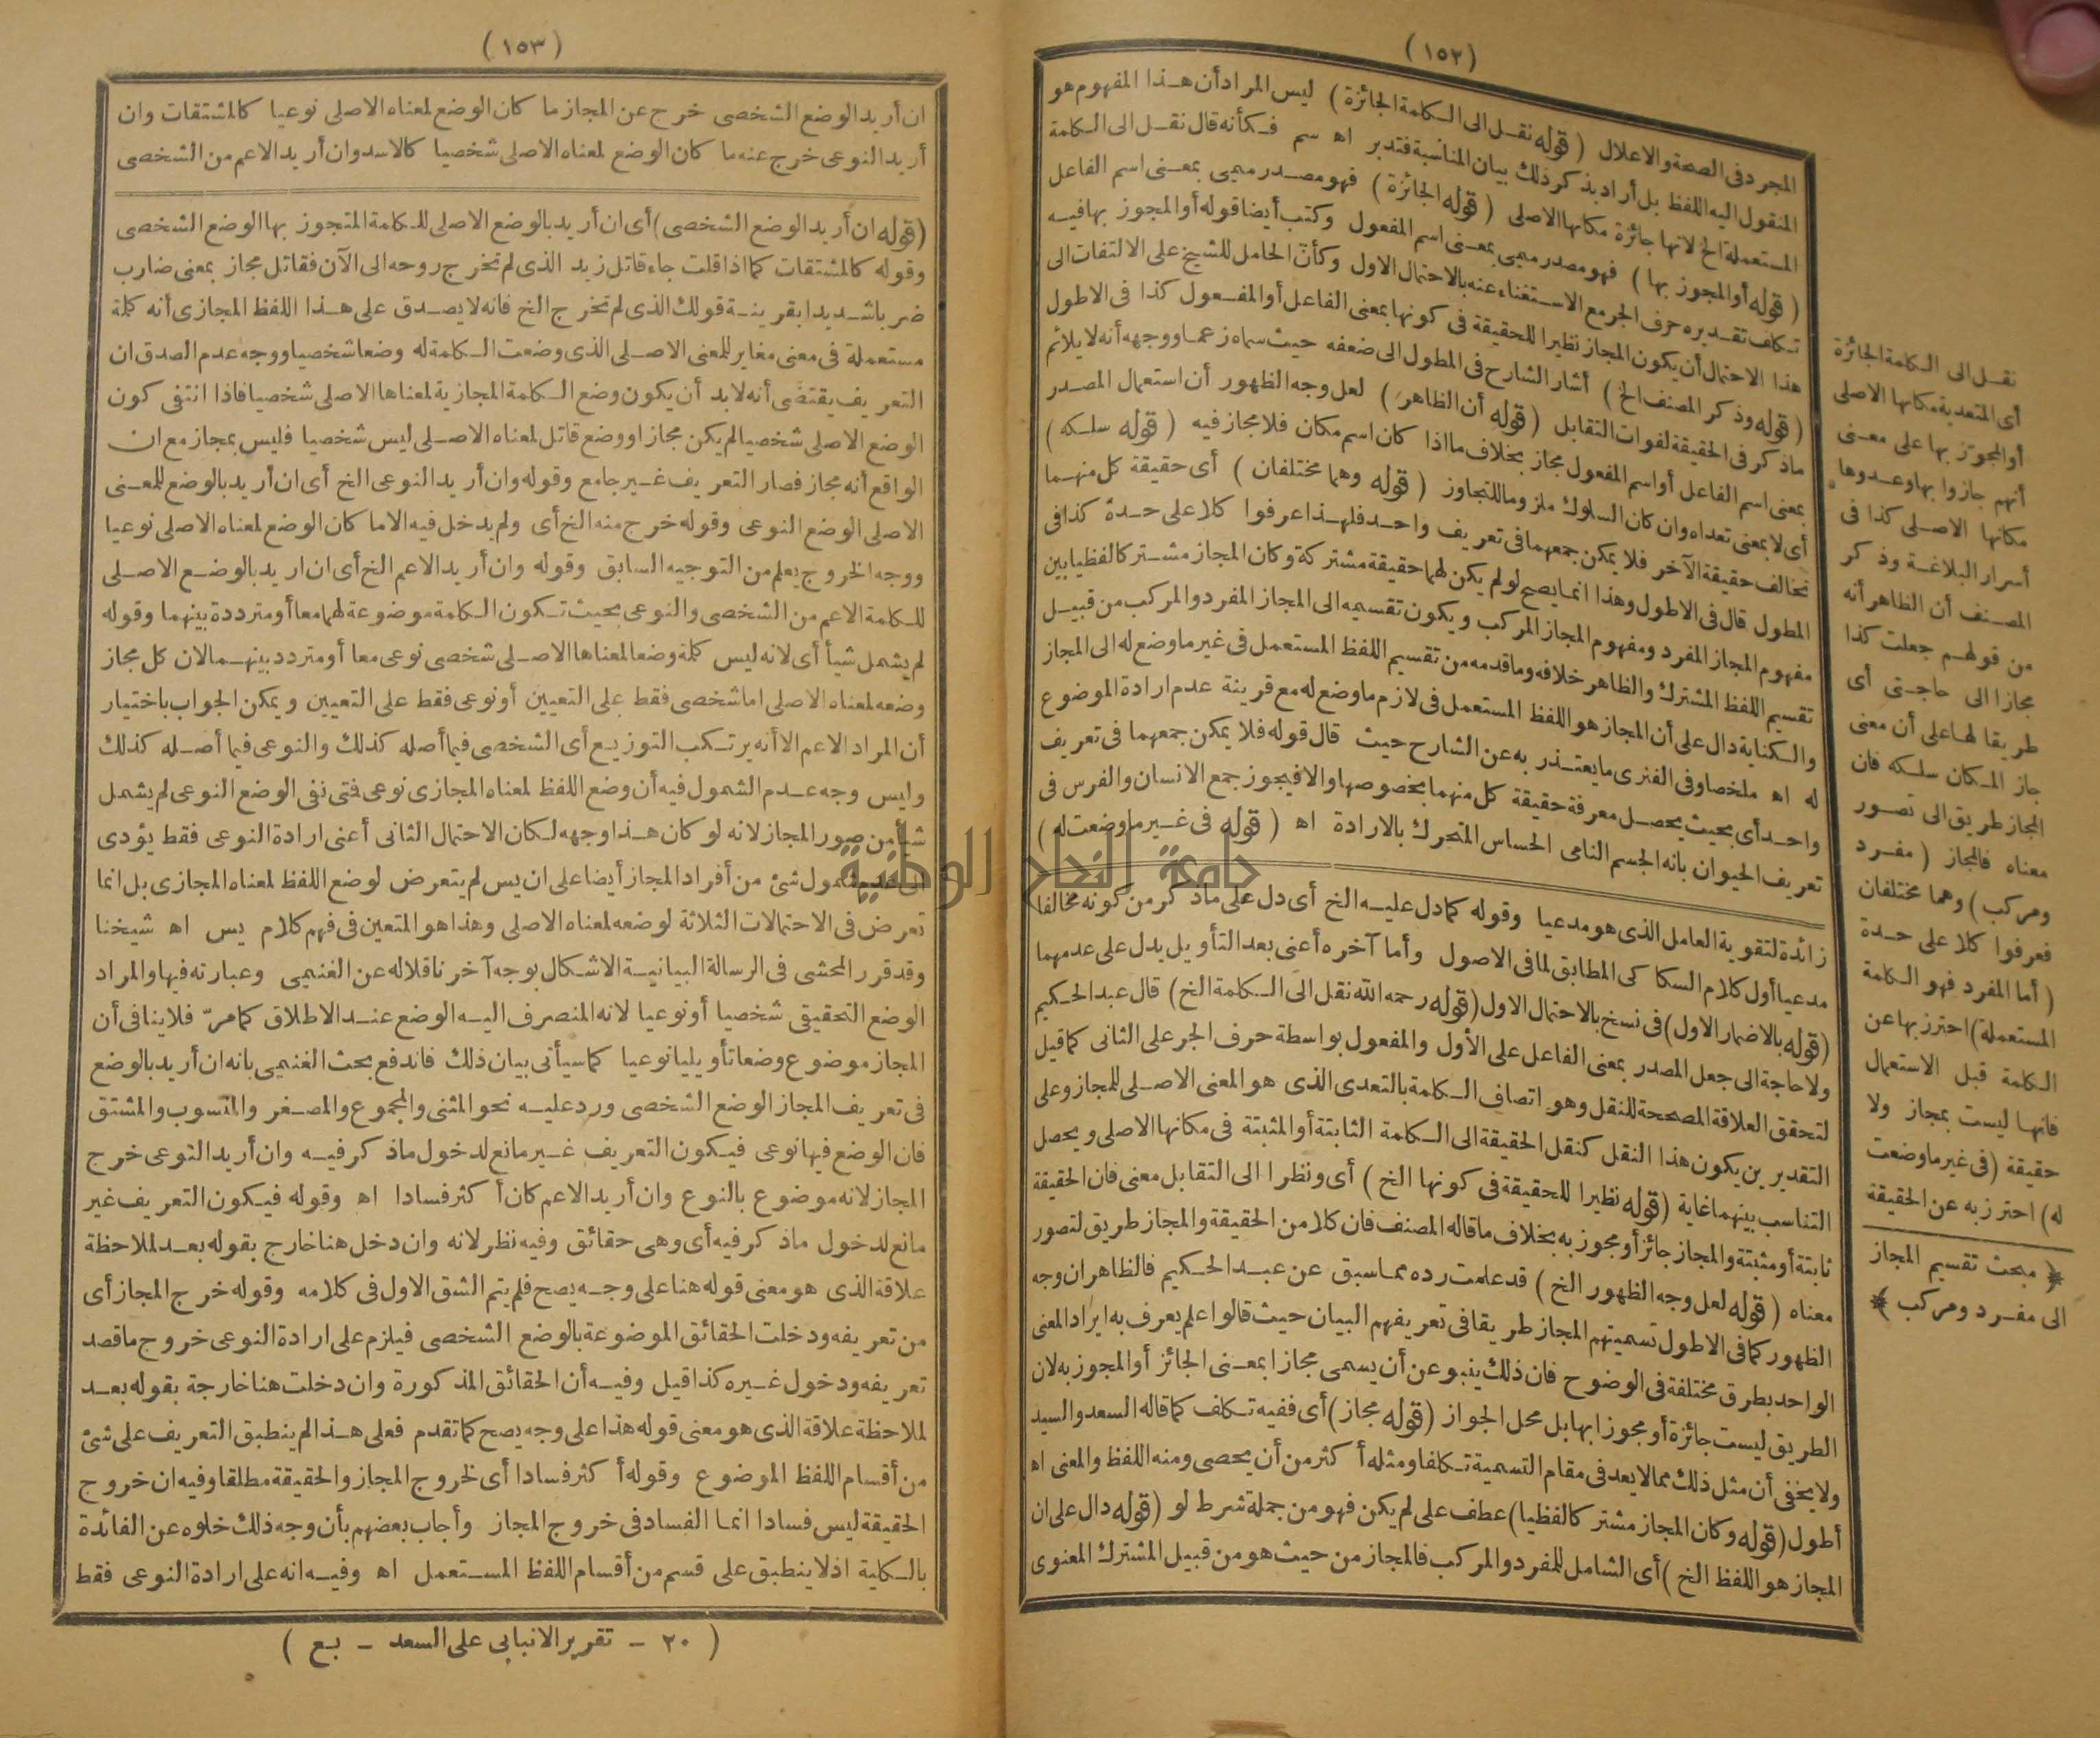 (١٥٢)
المجرد فى الصحة والاعلال (قوله نقل الى الكلمة الجائزة) ليس المراد أن هذا المفهوم هو
المنقول اليه اللفظ بل أراد بذكر ذلك بيان المناسبة فتدبر اه سم فكأنه قال نقل الى الكلمة
المستعملة الخ لانها جائزة مكانها الاصلى (قوله الجائزة) فهو مصدر ميمى بمعنى اسم الفاعل
(قوله أو المجوز بها) فهو مصدر ميمى بمعنى اسم المفعول وكتب أيضا قوله أو المجوز بها فيه
تكلف تقديره حرف الجر مع الاستغناء عنه بالاحتمال الاول وكأن الحامل للشيخ على الالتفات الى
هذا الاحتمال أن يكون المجاز نظيرا للحقيقة فى كونها بمعنى الفاعل أو المفعول كذا فى الاطول
(قوله وذكر المصنف الخ) أشار الشارح فى المطول الى ضعفه حيث سماه زعما ووجهه أنه لا يلائم
ماذكر فى الحقيقة لفوات التقابل (قوله أن الظاهر) لعل وجه الظهور أن استعمال المصدر
بمعنى اسم الفاعل أو اسم المفعول مجاز بخلاف ما اذا كان اسم مكان فلا مجاز فيه (قوله سلكه)
أى لا بمعنى تعداه وان كان السلوك ملزوما للتجاوز (قوله وهما مختلفان) أى حقيقة كل منهما
تخالف حقيقة الآخر فلا يمكن جمعهما فى تعريف واحد فلهذا عرفوا كلا على حدة كذا فى
المطول قال فى الاطول وهذا انما يصح لو لم يكن لهما حقيقة مشتركة وكان المجاز مشتركا لفظيا بين
مفهوم المجاز المفرد ومفهوم المجاز المركب ويكون تقسيمه الى المجاز المفرد والمركب من قبيل
تقسيم اللفظ المشترك والظاهر خلافه وما قدمه من تقسيم اللفظ المستعمل فى غير ما وضع له الى المجاز
والكناية دال على أن المجاز هو اللفظ المستعمل فى لازم ما وضع له مع قرينة عدم ارادة الموضوع
له اه ملخصا وفى الفنرى ما يعتذر به عن الشارح حيث قال قوله فلا يمكن جمعهما فى تعريف
واحد أى بحيث يحصل معرفة حقيقة كل منهما بخصوصها والا فيجوز جمع الانسان والفرس فى
تعريف الحيوان بانه الجسم النامى الحساس المتحرك بالارادة اه (قوله فى غير ما وضعت له)
زائدة لتقوية العامل الذى هو مدعيا وقوله كما دل عليه الخ أى دل على ماذكر من كونه مخالفا
مدعيا أول كلام السكاكى المطابق لما فى الاصول وأما آخره أعنى بعد التأويل يدل على عدمهما
(قوله بالاضمار الاول) فى نسخ بالاحتمال الاول (قوله رحمه الله نقل الى الكلمة الخ) قال عبد الحكيم
ولا حاجة الى جعل المصدر بمعنى الفاعل على الأول والمفعول بواسطة حرف الجر على الثانى كما قيل
لتحقق العلاقة المصححة للنقل وهو اتصاف الكلمة بالتعدى الذى هو المعنى الاصلى للمجاز وعلى
التقديرين يكون هذا النقل كنقل الحقيقة الى الكلمة الثابتة أو المثبتة فى مكانها الاصلى ويحصل
التناسب بينهما غاية (قوله نظيرا للحقيقة فى كونها الخ) أى ونظرا الى التقابل معنى فان الحقيقة
ثابتة أو مثبتة والمجاز جائز أو مجوز به بخلاف ما قاله المصنف فان كلا من الحقيقة والمجاز طريق لتصور
معناه (قوله لعل وجه الظهور الخ) قد علمت رده مما سبق عن عبد الحكيم فالظاهر ان وجه
الظهور كما فى الاطول تسميتهم المجاز طريقا فى تعريفهم البيان حيث قالوا علم يعرف به ايراد المعنى
الواحد بطرق مختلفة فى الوضوح فان ذلك ينبو عن أن يسمى مجازا بمعنى الجائز أو المجوز به لان
الطريق ليست جائزة أو مجوزا بها بل محل الجواز (قوله مجاز) أى ففيه تكلف كما قاله السعد والسيد
ولا يخفى أن مثل ذلك مما لا يعد فى مقام التسمية تكلفا ومثله أكثر من أن يحصى ومنه اللفظ والمعنى اه
أطول (قوله وكان المجاز مشتركا لفظيا) عطف على لم يكن فهو من جملة شرط لو (قوله دال على ان
المجاز هو اللفظ الخ) أى الشامل للمفرد والمركب فالمجاز من حيث هو من قبيل المشترك المعنوى
نقل الى الكلمة الجائزة
أى المتعدية مكانها الاصلى
أو المجوّز بها على معنى
أنهم جازوا بها وعدوها
مكانها الاصلى كذا فى
أسرار البلاغة وذكر
المصنف أن الظاهر أنه
من قولهم جعلت كذا
مجازا الى حاجتى أى
طريقا لها على أن معنى
جاز المكان سلكه فان
المجاز طريق الى تصور
معناه فالمجاز (مفرد
ومركب) وهما مختلفان
فعرفوا كلا على حدة
(أما المفرد فهو الكلمة
المستعملة) احترز بها عن
الكلمة قبل الاستعمال
فانها ليست بمجاز ولا
حقيقة (فى غير ما وضعت
له) احترز به عن الحقيقة
﴿ مبحث تقسيم المجاز
الى مفرد ومركب ﴾
(١٥٣)
ان أريد الوضع الشخصى خرج عن المجاز ما كان الوضع لمعناه الاصلى نوعيا كالمشتقات وان
أريد النوعى خرج عنه ما كان الوضع لمعناه الاصلى شخصيا كالاسد وان أريد الاعم من الشخصى
(قوله ان أريد الوضع الشخصى) أى ان أريد بالوضع الاصلى للكلمة المتجوز بها الوضع الشخصى
وقوله كالمشتقات كما اذا قلت جاء قاتل زيد الذى لم تخرج روحه الى الآن فقاتل مجاز بمعنى ضارب
ضربا شديدا بقرينة قولك الذى لم تخرج الخ فانه لا يصدق على هذا اللفظ المجازى أنه كلمة
مستعملة فى معنى مغاير للمعنى الاصلى الذى وضعت الكلمة له وضعا شخصيا ووجه عدم الصدق ان
التعريف يقتضى أنه لا بد أن يكون وضع الكلمة المجازية لمعناها الاصلى شخصيا فاذا انتفى كون
الوضع الاصلى شخصيا لم يكن مجازا ووضع قاتل لمعناه الاصلى ليس شخصيا فليس بمجاز مع ان
الواقع أنه مجاز فصار التعريف غير جامع وقوله وان أريد النوعى الخ أى ان أريد بالوضع للمعنى
الاصلى الوضع النوعى وقوله خرج منه الخ أى ولم يدخل فيه الا ما كان الوضع لمعناه الاصلى نوعيا
ووجه الخروج يعلم من التوجيه السابق وقوله وان أريد الاعم الخ أى ان اريد بالوضع الاصلى
للكلمة الاعم من الشخصى والنوعى بحيث تكون الكلمة موضوعة لهما معا أو مترددة بينهما وقوله
لم يشمل شيأ أى لانه ليس كلمة وضعا لمعناها الاصلى شخصى نوعى معا أو متردد بينهما لان كل مجاز
وضعه لمعناه الاصلى اما شخصى فقط على التعيين أو نوعى فقط على التعيين ويمكن الجواب باختيار
أن المراد الاعم الا أنه يرتكب التوزيع أى الشخصى فيما أصله كذلك والنوعى فيما أصله كذلك
وليس وجه عدم الشمول فيه أن وضع اللفظ لمعناه المجازى نوعى فتى نفى الوضع النوعى لم يشمل
شيأ من صور المجاز لانه لو كان هذا وجهه لكان الاحتمال الثانى أعنى ارادة النوعى فقط يؤدى
الى عدم شمول شئ من أفراد المجاز أيضا على ان يس لم يتعرض لوضع اللفظ لمعناه المجازى بل انما
تعرض فى الاحتمالات الثلاثة لوضعه لمعناه الاصلى وهذا هو المتعين فى فهم كلام يس اه شيخنا
وقد قرر المحشى فى الرسالة البيانية الاشكال بوجه آخر ناقلا له عن الغنيمى وعبارته فيها والمراد
الوضع التحقيقى شخصيا أو نوعيا لانه المنصرف اليه الوضع عند الاطلاق كما مرّ فلا ينافى أن
المجاز موضوع وضعا تأويليا نوعيا كما سيأتى بيان ذلك فاندفع بحث الغنيمى بانه ان أريد بالوضع
فى تعريف المجاز الوضع الشخصى ورد عليه نحو المثنى والمجموع والمصغر والمنسوب والمشتق
فان الوضع فيها نوعى فيكون التعريف غير مانع لدخول ماذكر فيه وان أريد النوعى خرج
المجاز لانه موضوع بالنوع وان أريد الاعم كان أكثر فسادا اه وقوله فيكون التعريف غير
مانع لدخول ماذكر فيه أى وهى حقائق وفيه نظر لانه وان دخل هنا خارج بقوله بعد لملاحظة
علاقة الذى هو معنى قوله هنا على وجه يصح فلم يتم الشق الاول فى كلامه وقوله خرج المجاز أى
من تعريفه ودخلت الحقائق الموضوعة بالوضع الشخصى فيلزم على ارادة النوعى خروج ما قصد
تعريفه ودخول غيره كذا قيل وفيه أن الحقائق المذكورة وان دخلت هنا خارجة بقوله بعد
لملاحظة علاقة الذى هو معنى قوله هذا على وجه يصح كما تقدم فعلى هذا لم ينطبق التعريف على شئ
من أقسام اللفظ الموضوع وقوله أكثر فسادا أى لخروج المجاز والحقيقة مطلقا وفيه ان خروج
الحقيقة ليس فسادا انما الفساد فى خروج المجاز وأجاب بعضهم بأن وجه ذلك خلوه عن الفائدة
بالكلية اذ لا ينطبق على قسم من أقسام اللفظ المستعمل اه وفيه انه على ارادة النوعى فقط
(٢٠ - تقرير الانبابى على السعد - بع)
جامعة النجاح الوطنية